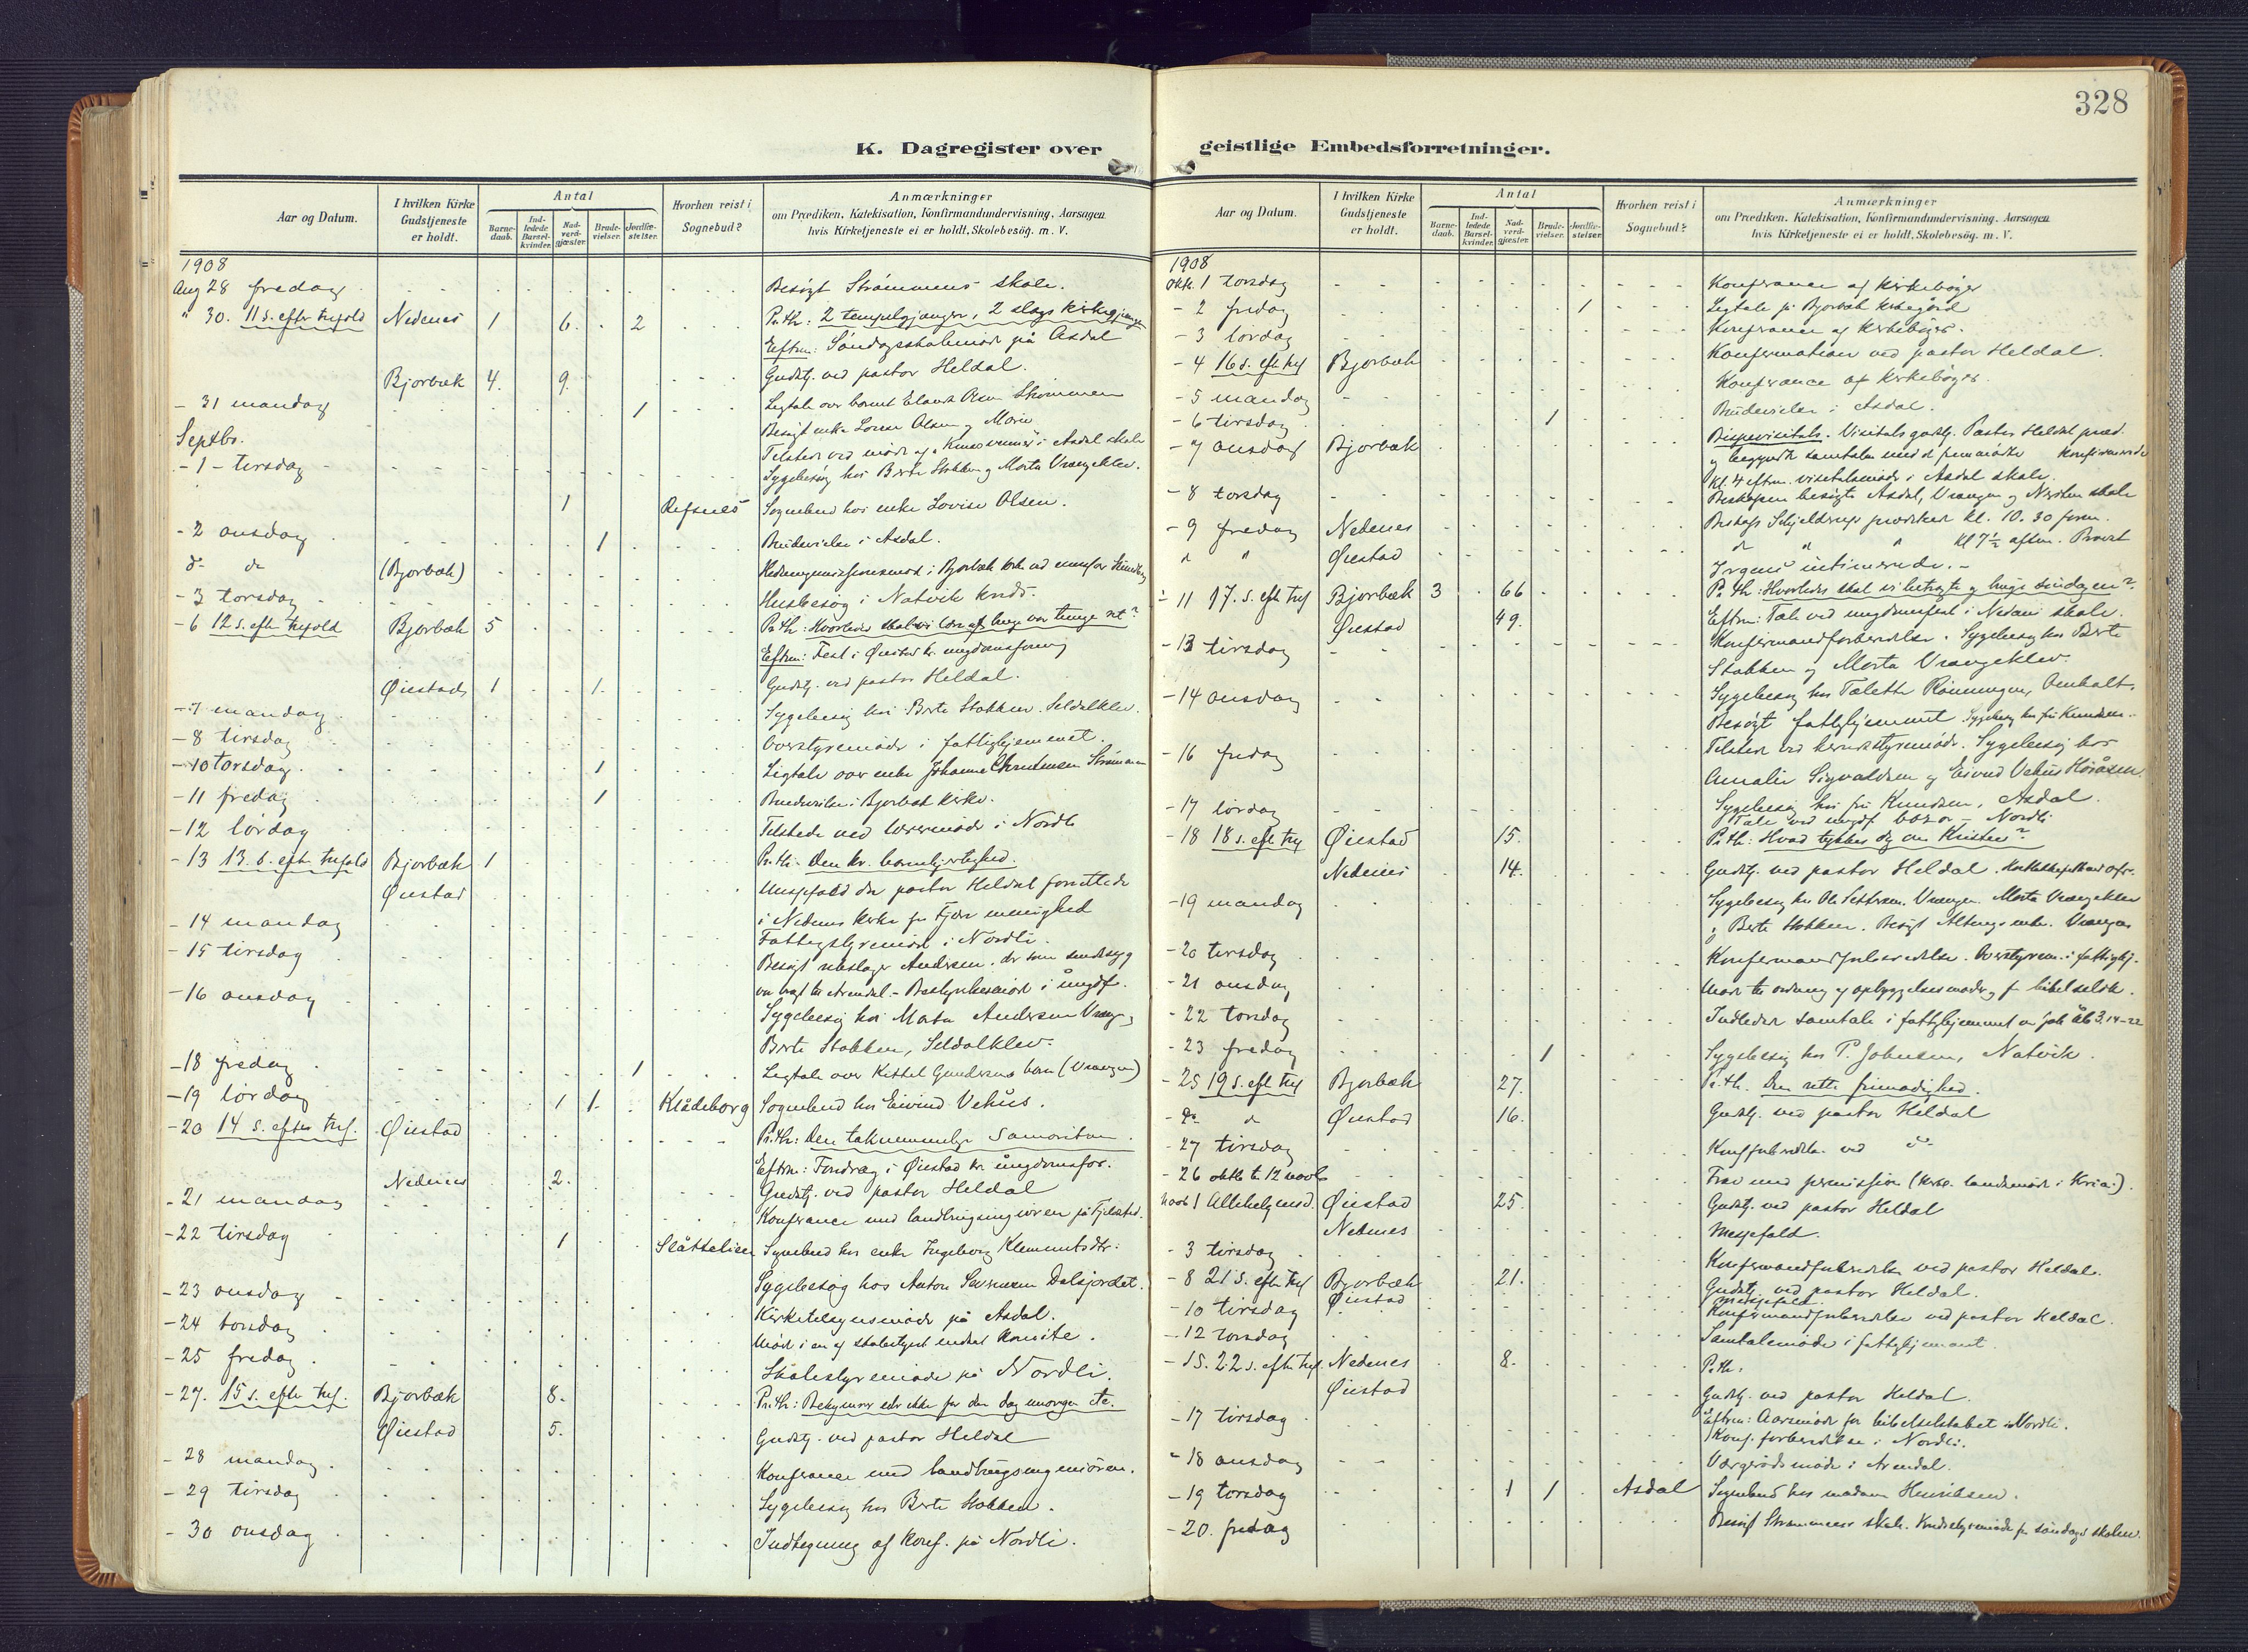 328
K. Dagregister over
geistlige Embedsforretninger.
Aar og Datum.
I hvilken Kirke Gudstjeneste er holdt.
Antal
Barne-daab.
Ind-ledede Barsel-kvinder.
Nad-verd-gjæster.
Brude-vielser.
Jordfæ-stelser.
Hvorhen reist i Sognebud?
Anmærkninger
om Prædiken, Katekisation, Konfirmandundervisning, Aarsagen
hvis Kirketjeneste ei er holdt, Skolebesög. m. V.
1908
Aug 28 fredag Besøgt Strømmens skole.
" 30. 11 s. efter trefold Nedenes 1 6. 2 Pr. th: 2 tempelgjænger, 2 slags kirkegjænger
Eftm: Søndagsskolemøde på Asdal
Bjorbæk 4. 9. Gudstj. ved pastor Heldal.
- 31 mandag 1 Ligtale over barnet Strømmen
Besøgt enke Olsen
Septbr.
- 1 - tirsdag Tilstede ved møde i Asdal skole
Sygebesøg hos Berte Stokken og Marta Vrængeklev.
1 Refsnes Sognebud hos enke Lovise Olsen.
- 2 onsdag 1 Brudevielse i Asdal.
do do (Bjorbæk) i Bjorbæk kirke ved
- 3 torsdag Husbesøg i Natvik kreds.
- 6 12 s. efter trefold Bjorbæk 5 Pr. th: Hvorledes skal vi
Eftm: Fest i Øiestad kr. ungdomsforening
Øiestad 1 1. Gudstj. ved pastor Heldal.
- 7 mandag Sygebesøg hos Berte Stokken. Seldalklev.
- 8 tirsdag Overstyremøde i fattighjemmet.
- 10 torsdag 1 Ligtale over enke Johanne Strømmen
- 11 fredag 1 Brudevielse i Bjorbæk kirke.
- 12 lördag Tilstede ved lærermøde i Nordli
- 13 13. s. efter trefold Bjorbæk 1 Pr. th. Den kr. barmhjertighed.
Øiestad Messefald da pastor Heldal forrettede
i Nedenes kirke for Fjære menighed
- 14 mandag Fattigstyremøde i Nordli.
- 15 tirsdag Besøgt Andersen, der som sindssyg
var bragt til Arendal. - Bestyrelsesmøde i ungdf.
- 16 onsdag Sygebesøg hos Marta Andersen
Berte Stokken, Seldalklev.
- 18 fredag 1 Ligtale over Kittel Gundersens barn (Vrængen)
- 19 lördag 1 1. Klådeborg Sognebud hos Eivind Vehus.
- 20 14 s. efter tref. Øiestad Pr. th: Den taknemmelige Samaritan.
Eftm: Foredrag i Øiestad kr. ungdomsfor.
Nedenes 2. Gudstj. ved pastor Heldal
- 21 mandag Konferance med landbrugsingeniøren på
- 22 tirsdag 1 Slåttelien Sognebud hos enke Ingeborg Klemmetsdtr.
Sygebesøg hos Anton
- 23 onsdag Kirketilsynsmøde på Asdal.
- 24 torsdag Møde i en af skolestyret nedsat komite.
- 25 fredag Skolestyremøde på Nordli.
- 27. 15 s. efter tref. Bjorbæk 8. Pr. th: Bekymrer eder ikke for den dag imorgen etc.
Øiestad 5. Gudstj. ved pastor Heldal
- 28 mandag Konferance med landbrugsingeniøren.
- 29 tirsdag Sygebesøg hos Berte Stokken.
- 30 onsdag Indtegning af konf. på Nordli.
Aar og Datum.
I hvilken Kirke Gudstjeneste er holdt.
Antal
Barne-daab.
Ind-ledede Barsel-kvinder.
Nad-verd-gjæster.
Brude-vielser.
Jordfæ-stelser.
Hvorhen reist i Sognebud?
Anmærkninger
om Prædiken, Katekisation, Konfirmandundervisning, Aarsagen
hvis Kirketjeneste ei er holdt, Skolebesög. m. V.
1908
Oktr. 1 torsdag Konferance af kirkebøger
- 2 fredag 1 Ligtale på Bjorbæk kirkegård
- 3 lørdag Konferance af kirkebøger.
- 4 16 s. eft. tref Bjorbæk Konfirmation ved pastor Heldal.
- 5 mandag Konferance af kirkebøger.
- 6 tirsdag 1 Brudevielse i Asdal.
- 7 onsdag Bjorbæk Bispevisitats. Visitatsgudstj. Pastor Heldal præd.
og begyndte samtalen med de fremmødte konfirmerede
Kl. 4 eftm. visitatsmøde i Asdal skole.
- 8 torsdag Biskopen besøgte Asdal, Vrængen og skole
- 9 fredag Nedenes Biskop Schjelderup prædiked kl. 10.30 form.
" " Øiestad do " " Kl 7½ aften. Provst
intimerede. -
- 11 17. s. eft. tref Bjorbæk 3 66 Pr. th: Hvorledes skal vi betragte og bruge søndagen?
Øiestad 49. Eftm: Tale ved ungdomsfest i Nedenes skole.
- 13 tirsdag Konfirmandforberedelse. Sygebesøg hos Berte
Stokken og Marta Vrængeklev.
- 14 onsdag Sygebesøg hos Rønningen,
Besøgt fattighjemmet Sygebesøg hos fru Knudsen.
- 16 fredag Tilstede ved herredsstyremøde. Sygebesøg hos
Amalie Sigvaldsen og Eivind Vehus
- 17 lördag Sygebesøg hos fru Knudsen, Asdal.
Tale ved ungdf. bazar - Nordli
- 18 18 s. eft tref Øiestad 15. Pr. th: Hvad tykkes dig om Kristus?
Nedenes 14. Gudstj. ved pastor Heldal.
- 19 mandag Sygebesøg hos Ole Vrængen. Marta Vrængeklev
og Berte Stokken. Besøgt enke. Vrængen
- 20 tirsdag Konfirmandforberedelse. Overstyrem. i fattighj.
- 21 onsdag Møde til ordning af opbyggelsesmøder f. bibelselsk.
- 22 torsdag Indleder samtale i fattighjemmet om Joh åb 3.14-22
- 23 fredag 1 Sygebesøg hos P. Johnsen, Natvik.
- 25 19 s. eft tref Bjorbæk 27. Pr. th. Den rette frimodighed.
- do do Øiestad 16. Gudstj. ved pastor Heldal
- 27 tirsdag Konfforberedelse ved do
- 26 oktb til 12 novb Frav. med permission (kirk. landsmøde i Kria.).
Novb 1 Allehelgensd. Øiestad 25. Gudstj. ved pastor Heldal
Nedenes Messefald.
- 3 tirsdag Konfirmandforberedelse ved pastor Heldal.
- 8 21 s. eft. tref Bjorbæk 21. Gudstj. ved pastor Heldal.
Øiestad Messefald.
- 10 tirsdag Konfirmandforberedelse ved pastor Heldal.
- 12 torsdag Samtalemøde i fattighjemmet.
- 15. 22 s. efter tref. Nedenes 8. Pr. th:
Øiestad Gudstj. ved pastor Heldal.
Eftm: Aarsmøde for bibelselskabet i Nordli.
- 17 tirsdag Konf. forberedelse i Nordli.
- 18 onsdag Værgerådsmøde i Arendal.
- 19 torsdag 1 1 Asdal Sognebud hos madam Henriksen.
- 20. fredag Besøgt Strømmens skole. Kredsstyremøde for søndagsskolen.